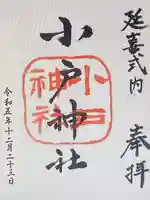 奉拝
延喜式内
小戸神社
小戸
神社
令和五年十二月二十三日